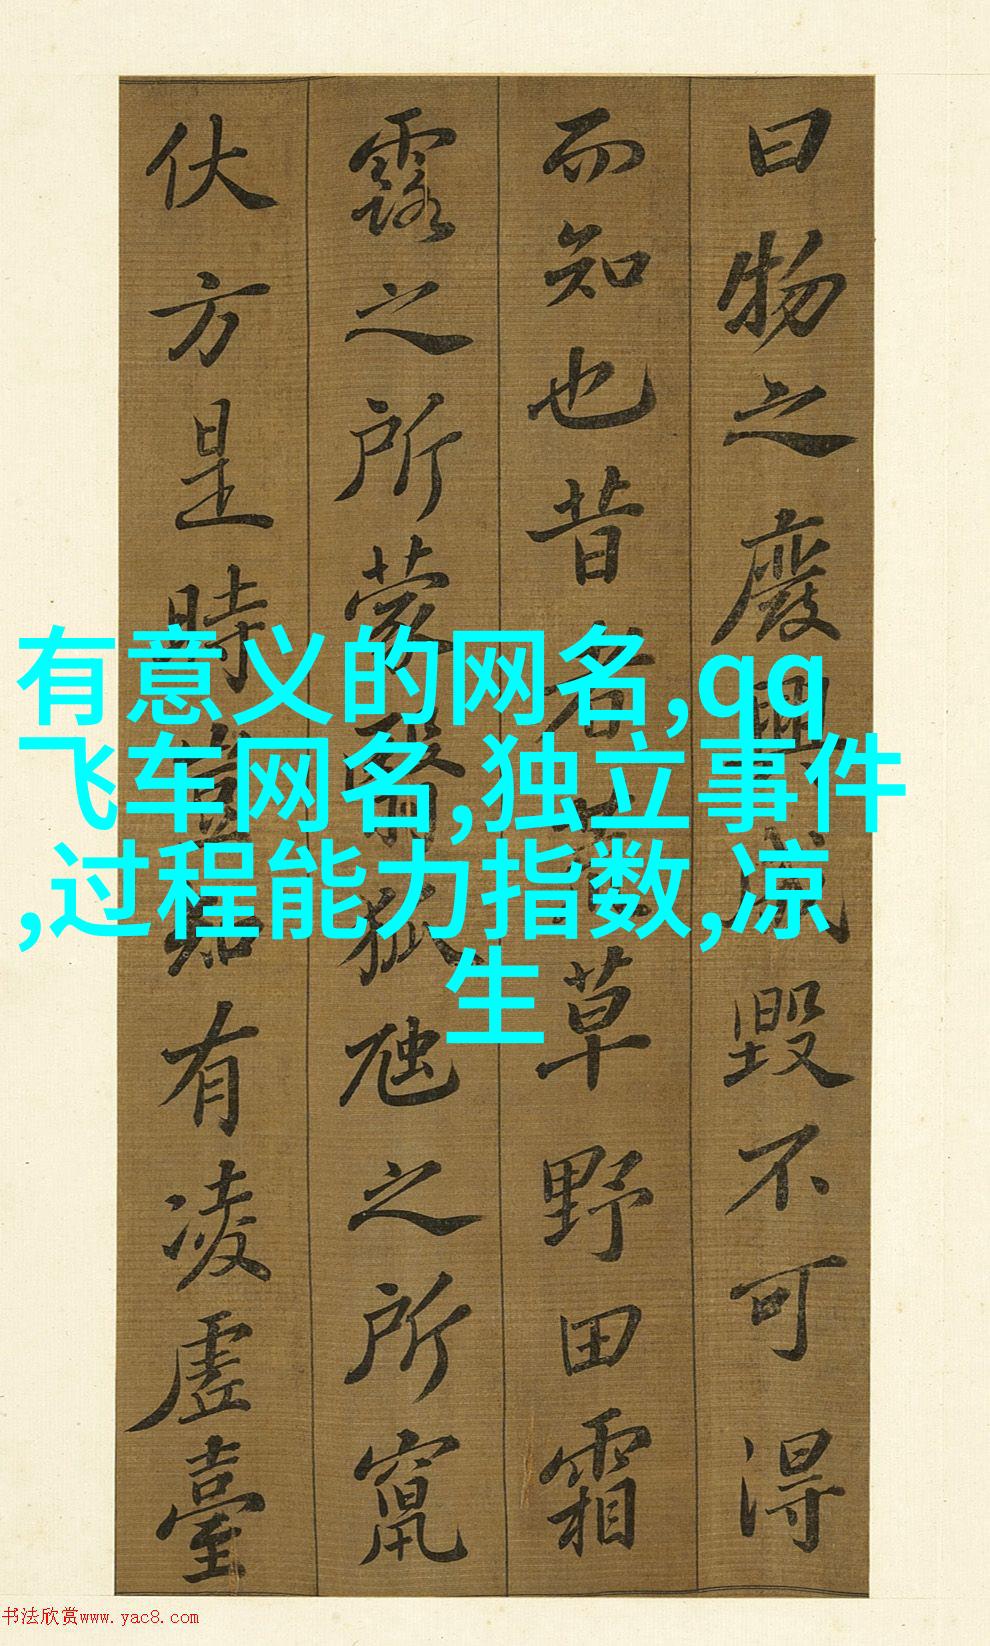 曰物之廢興成毀不可得
而知也昔者荒草野田霜
露之所蒙翳狐虺之所竄
伏方是時豈知有凌虛臺
有意义的网名,qq
飞车网名,独立事件
,过程能力指数,凉
生
书法欣赏www.yac8.com